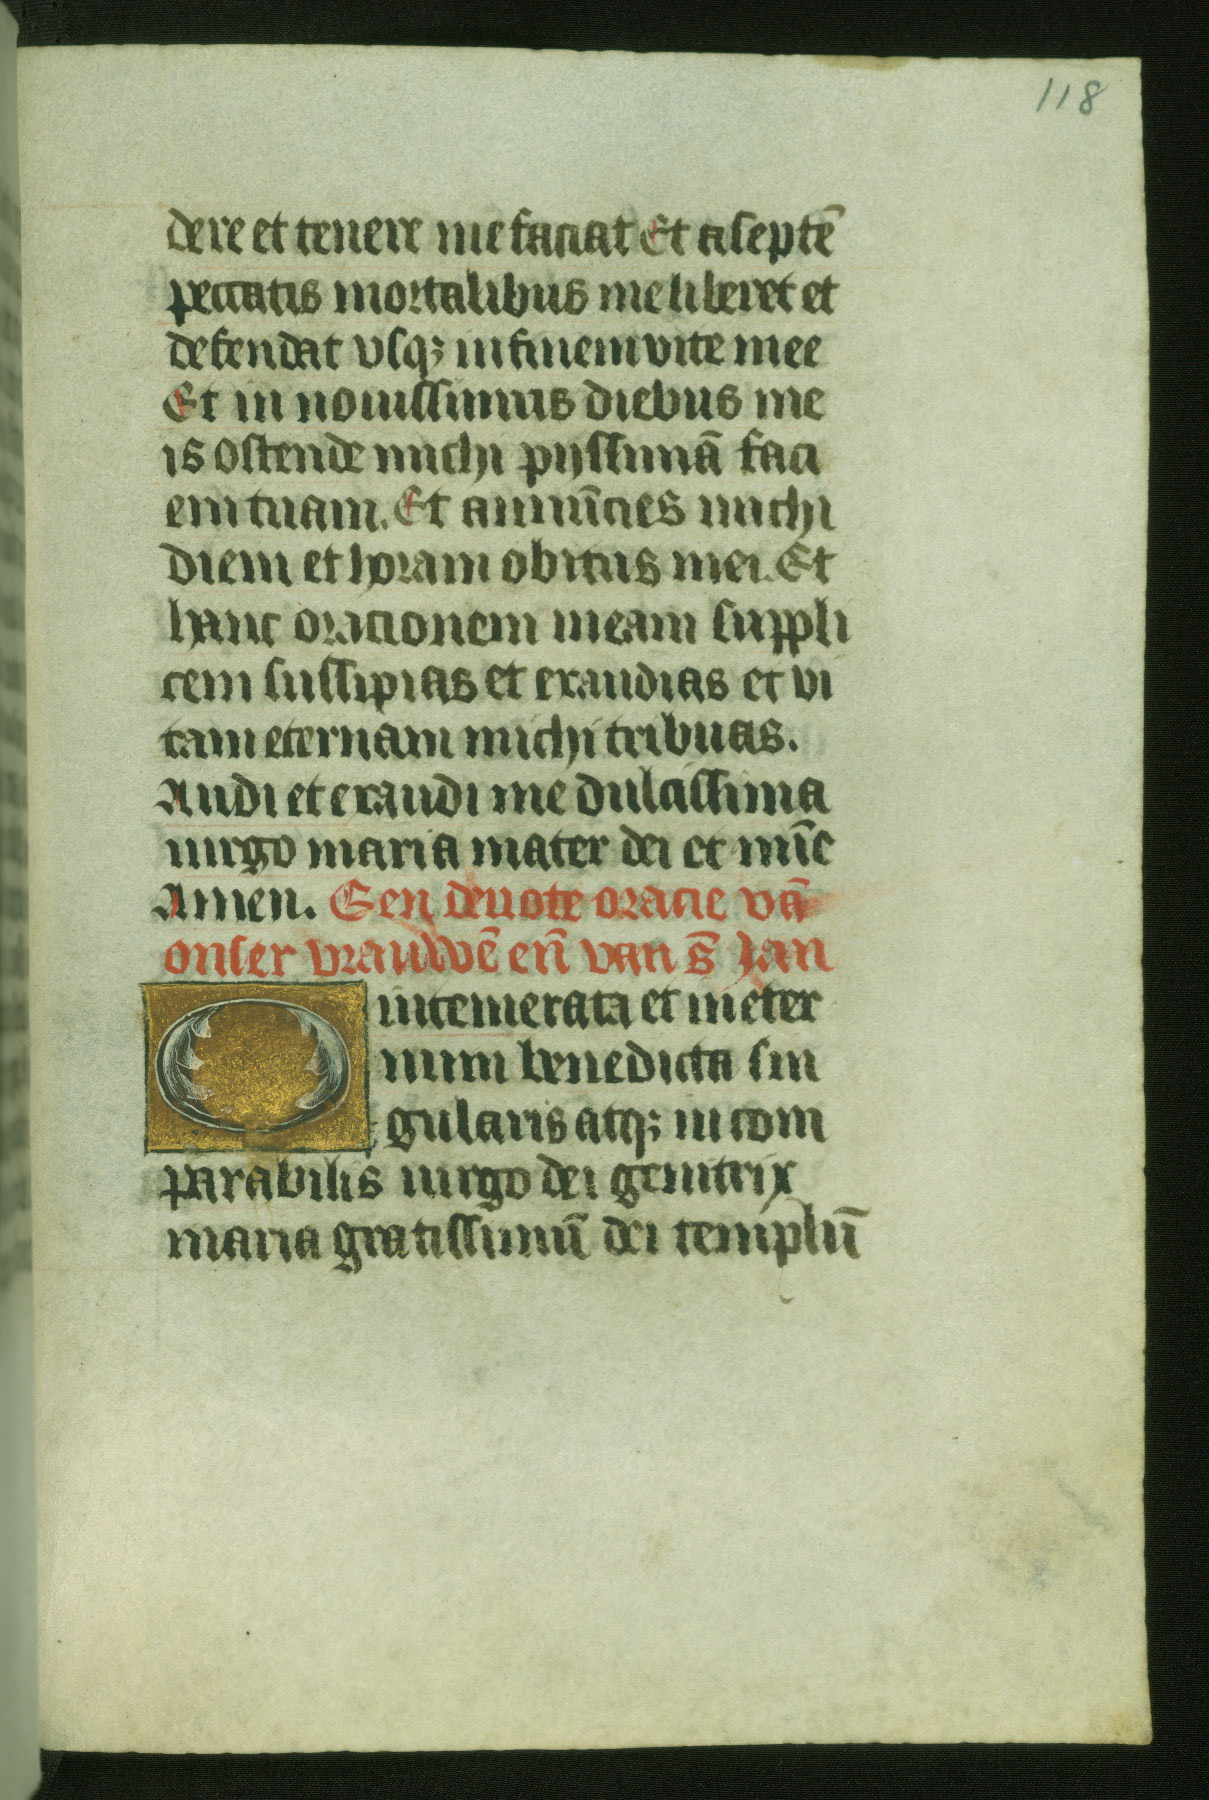 118
dere et tenere me faciat Et a septē
peccatis mortalibus me liberet et
defendat vsqꝫ in finem vite mee
Et in nouissimis diebus me
is ostende michi pijssimā faci
em tuam. Et annūcies michi
diem et horam obitus mei. Et
hanc orationem meam suppli
cem sussipias et exaudias et vi
tam eternam michi tribuas.
Audi et exaudi me dulcissima
uirgo maria mater dei et mīe
Amen. Een deuote oracie vā
onser vrauwē eñ van s̄ Jan
O intemerata et in eter
num benedicta sin
gularis atqꝫ in com
parabilis uirgo dei genitrix
maria gratissimū dei templū